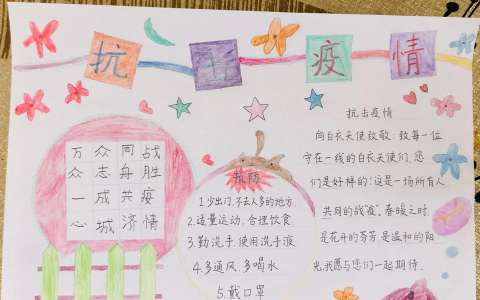 抗击疫情
万众同战
众志舟胜
一成共疫
心城济情
预防
1.少出门,不去人多的地方
2.适量运动,合理饮食
3.勤洗手,使用洗手液
4.多通风,多喝水
5.戴口罩
抗击疫情
向白衣天使致敬:致每一位
守在一线的白衣天使们,您
们是好样的!这是一场所有人
共同的战"疫",春暖之时,
是花开的芬芳,是温和的阳
光,我愿与您们一起期待。